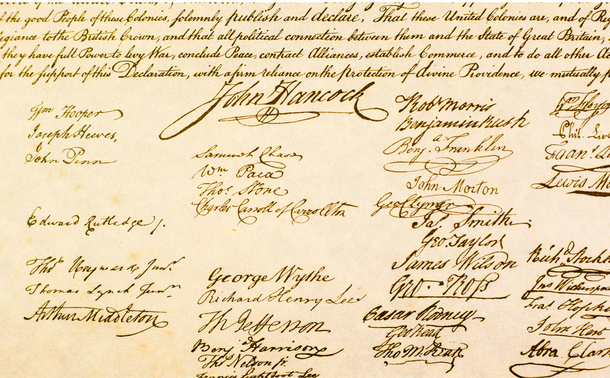 of the good People of these Colonies, solemnly publish and declare, That these United Colonies are, and of Rig
egiance to the British Crown, and that all political connection between them and the State of Great Britain,
they have full Power to levy War, conclude Peace, contract Alliances, establish Commerce, and to do all other Ac
for the support of this Declaration, with a firm reliance on the Protection of divine Providence, we mutually p
John Hancock
Wm Hooper
Joseph Hewes,
John Penn
Edward Rutledge /.
Thos Heyward Junr.
Thomas Lynch Junr.
Arthur Middleton
Samuel Chase
Wm Paca
Thos Stone
Charles Carroll of Carrollton
George Wythe
Richard Henry Lee
Th Jefferson
Benj Harrison
Thos Nelson jr.
Francis Lightfoot Lee
Robt Morris
Benjamin Rush
Benj Franklin
John Morton
Geo Clymer
Jas Smith
Geo Taylor
James Wilson
Geo. Ross
Caesar Rodney
Geo Read
Tho M:Kean
Phil. Liv
Lewis M
Richd Stockt
Jno Witherspoo
Fras Hopki
John Har
Abra Clar